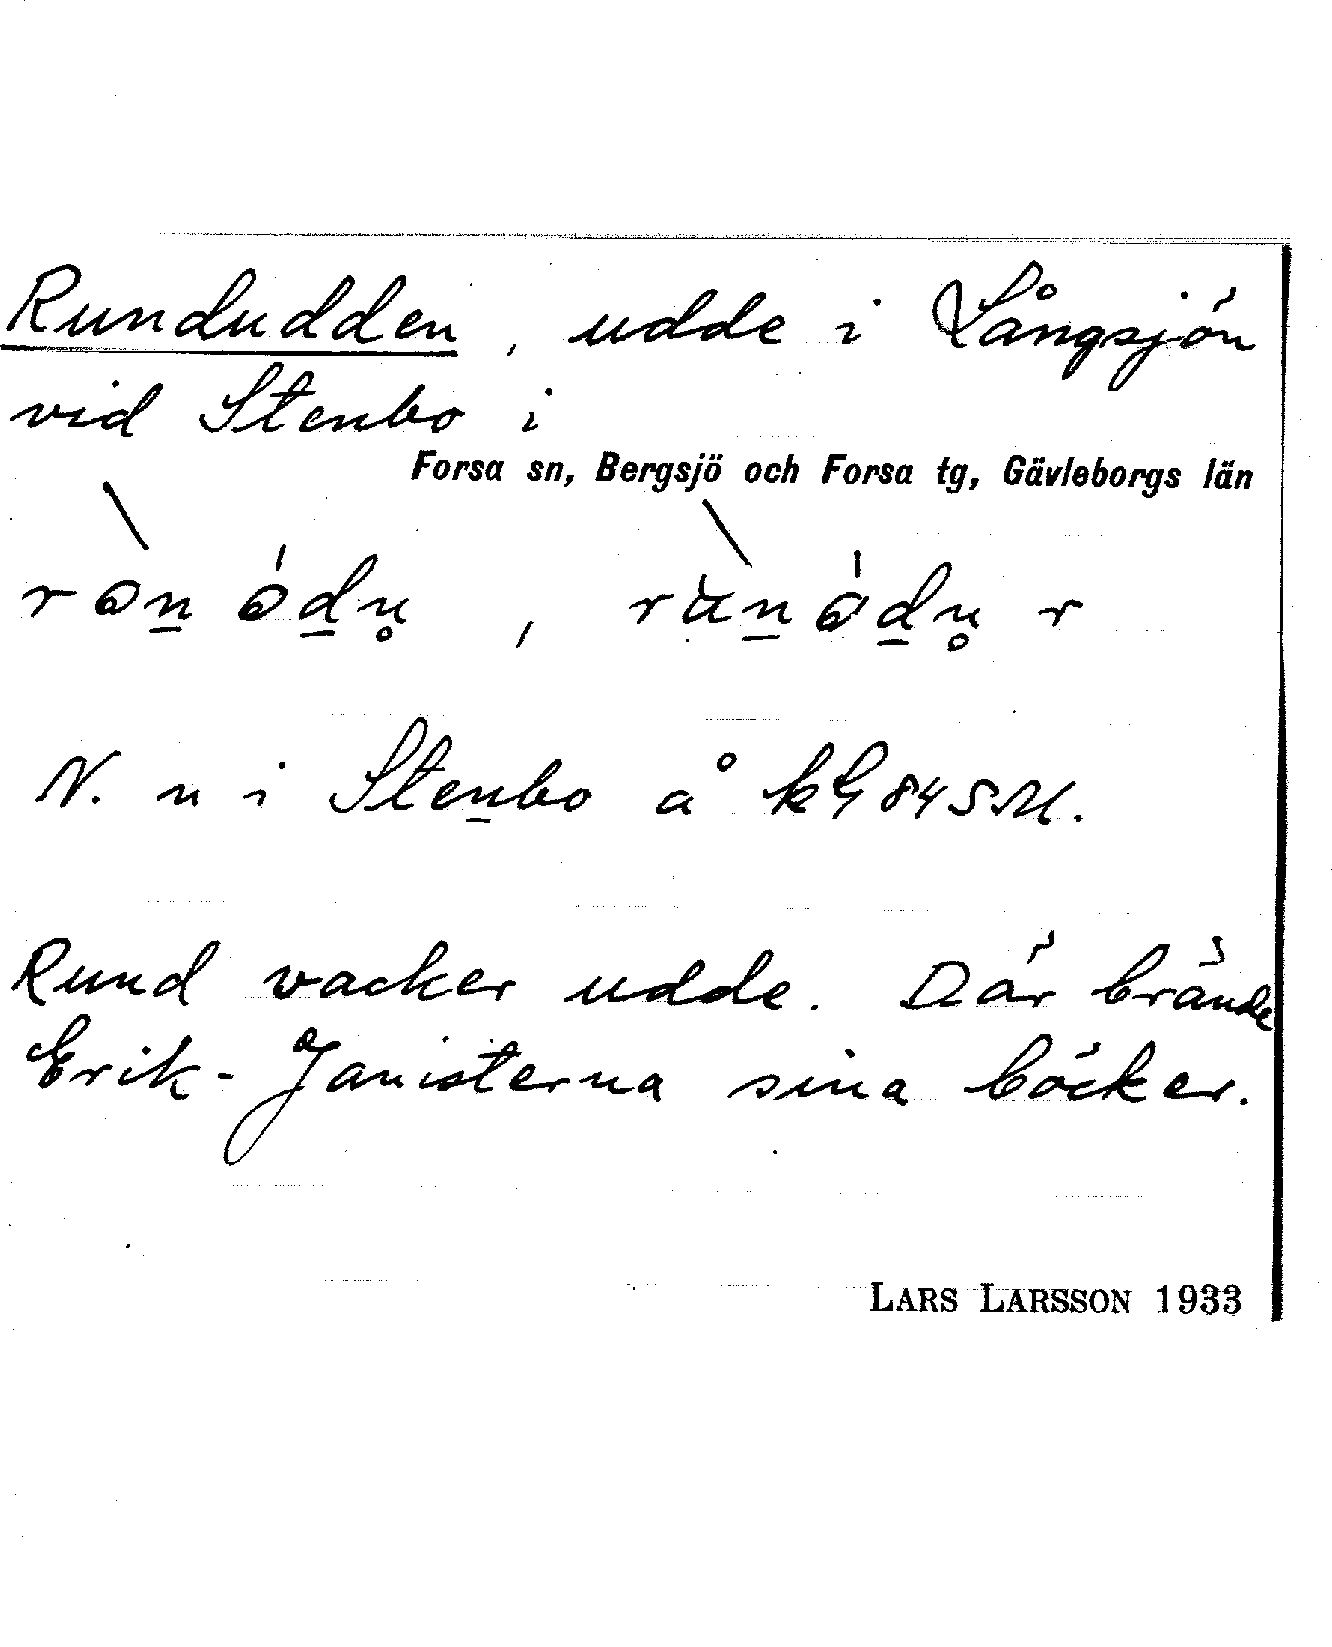 Rundudden, udde i Långsjön
vid Stenbo i
Forsa sn, Bergsjö och Forsa tg, Gävleborgs län
N. n i Stenbo å kG 84 SM.
Rund vacker udde. Där brände
Erik-Janisterna sina böcker.
LARS LARSSON 1933